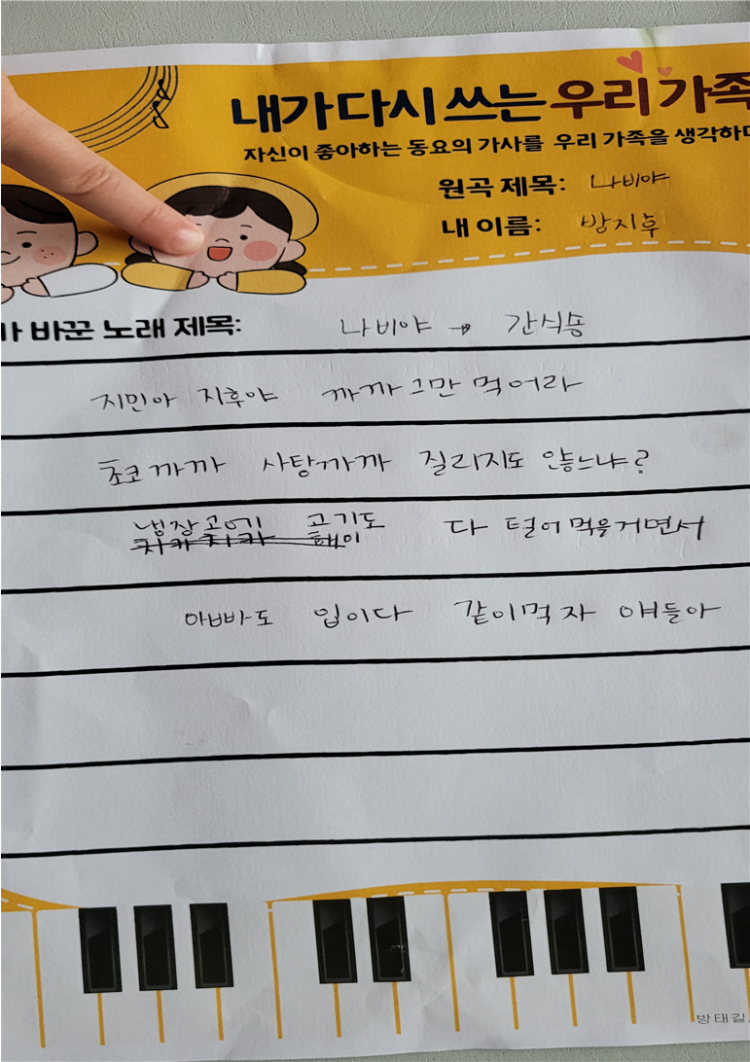 내가 다시 쓰는 우리 가족
자신이 좋아하는 동요의 가사를 우리 가족을 생각하며
원곡 제목: 나비야
내 이름: 방지후
가 바꾼 노래 제목: 나비야 → 간식송
지민아 지후야 까까 그만 먹어라
초코 까까 사탕까까 질리지도 않느냐?
냉장고에 고기도 다 털어먹을거면서
아빠도 입이다 같이먹자 얘들아
방태길